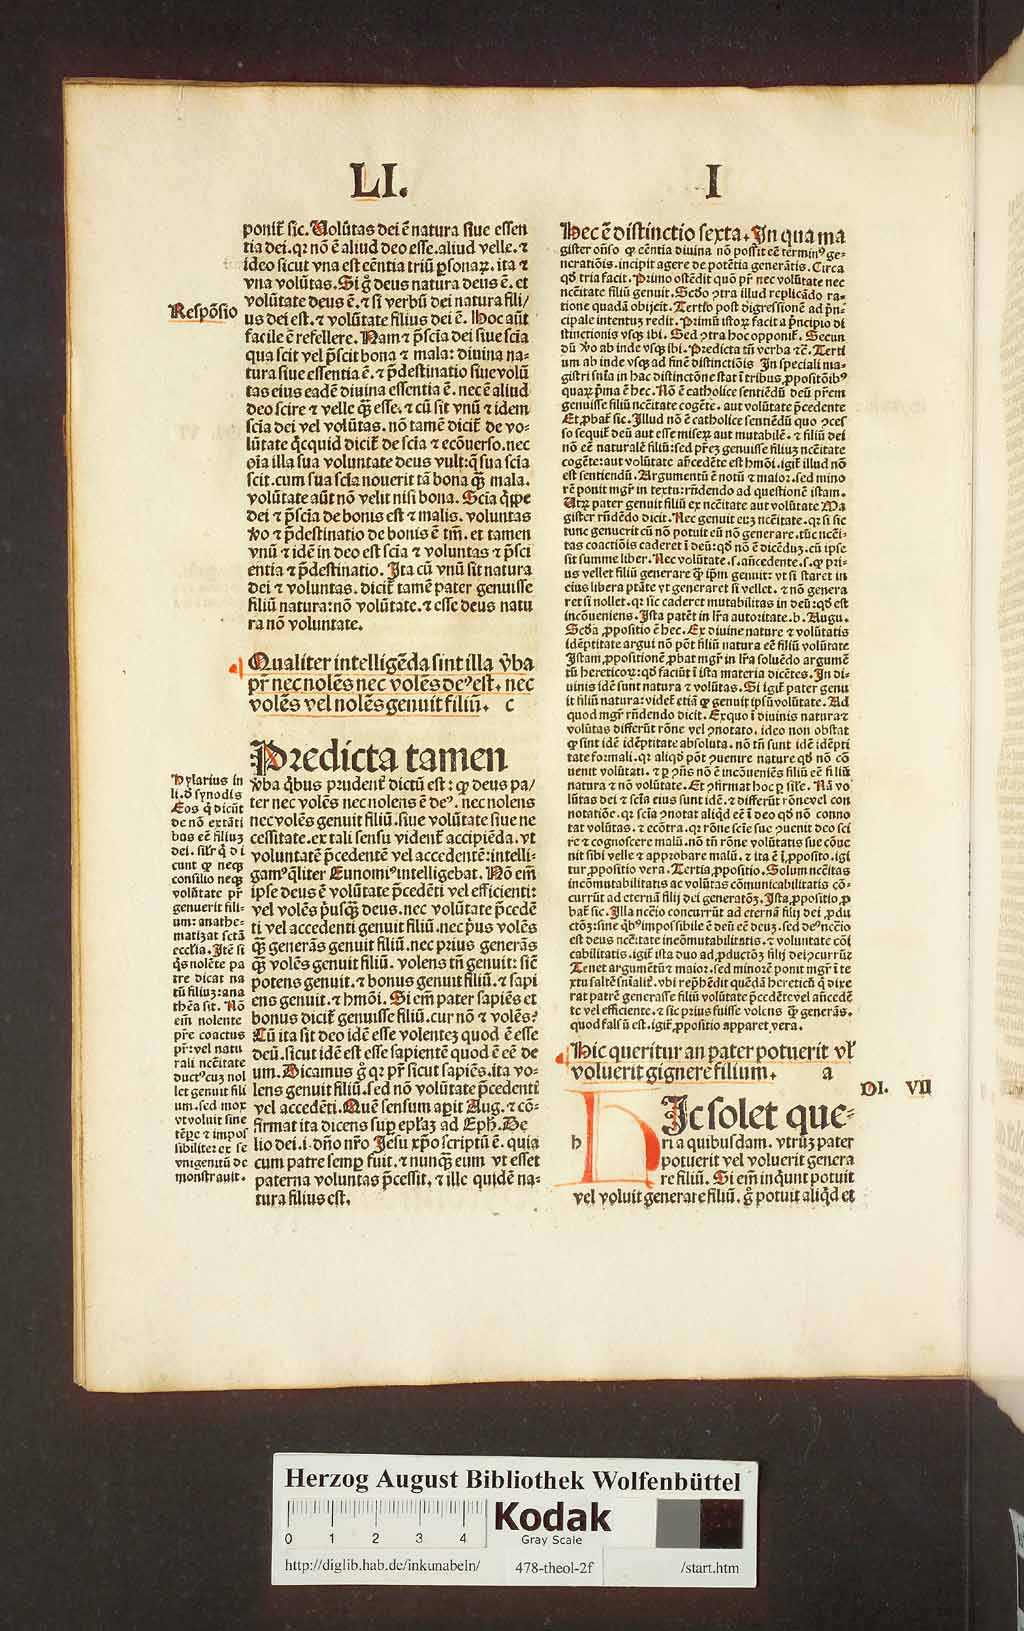 LI. I
ponit̃ sic. Volũtas dei ẽ natura siue essen
tia dei. qꝛ nõ ẽ aliud deo esse. aliud velle. ⁊
ideo sicut vna est eẽntia triũ ꝑsonaꝝ. ita ⁊
vna volũtas. Si g̃ deus natura deus ẽ. et
volũtate deus ẽ. ⁊ si verbũ dei natura fili/
us dei est. ⁊ volũtate filius dei ẽ. Hoc aũt
facile ẽ refellere. Nam ⁊ p̃scĩa dei siue scĩa
qua scit vel p̃scit bona ⁊ mala: diuina na-
tura siue essentia ẽ. ⁊ p̃destinatio siue volũ
tas eius eadẽ diuina essentia ẽ. nec ẽ aliud
deo scire ⁊ velle q̃ȝ esse. ⁊ cũ sit vnũ ⁊ idem
scĩa dei vel volũtas. nõ tamẽ dicit̃ de vo-
lũtate q̃cquid dicit̃ de scĩa ⁊ ecõuerso. nec
oĩa illa sua voluntate deus vult: q̃ sua scĩa
scit. cum sua scĩa nouerit tã bona q̃ȝ mala.
volũtate aũt nõ velit nisi bona. Scĩa q̃ppe
dei ⁊ p̃scĩa de bonis est ⁊ malis. voluntas
ṽo ⁊ p̃destinatio de bonis ẽ tm̃. et tamen
vnũ ⁊ idẽ in deo est scĩa ⁊ voluntas ⁊ p̃sci
entia ⁊ p̃destinatio. Ita cũ vnũ sit natura
dei ⁊ voluntas. dicit̃ tamẽ pater genuisse
filiũ natura: nõ volũtate. ⁊ esse deus natu
ra nõ voluntate.
Respõsio
¶ Qualiter intelligẽda sint illa ṽba
pr̃ nec nolẽs nec volẽs deꝰ est. nec
volẽs vel nolẽs genuit filiũ. c
Predicta tamen
ṽba q̃bus prudent̃ dictũ est: ꝙ deus pa/
ter nec volẽs nec nolens ẽ deꝰ. nec nolens
nec volẽs genuit filiũ. siue volũtate siue ne
cessitate. ex tali sensu vident̃ accipiẽda. vt
voluntatẽ p̃cedentẽ vel accedentẽ: intelli-
gamꝰ q̃liter Eunomiꝰ intelligebat. Nõ em̃
ipse deus ẽ volũtate p̃cedẽti vel efficienti:
vel volẽs p̃usq̃ȝ deus. nec volũtate p̃cedẽ
ti vel accedenti genuit filiũ. nec p̃us volẽs
q̃ȝ generãs genuit filiũ. nec prius generãs
q̃ȝ volẽs genuit filiũ. volens tñ genuit: sic̃
potens genuit. ⁊ bonus genuit filiũ. ⁊ sapi
ens genuit. ⁊ hmõi. Si em̃ pater sapiẽs et
bonus dicit̃ genuisse filiũ. cur nõ ⁊ volẽs?
Cũ ita sit deo idẽ esse volenteȝ quod ẽ esse
deũ. sicut idẽ est esse sapientẽ quod ẽ eẽ de
um. Dicamus g̃ qꝛ pr̃ sicut sapiẽs. ita vo-
lens genuit filiũ. sed nõ volũtate p̃cedenti
vel accedẽti. Quẽ sensum aꝑit Aug. ⁊ cõ-
firmat ita dicens suꝑ epl̃aȝ ad Eph. De
filio dei. i. dño nr̃o Jesu xp̃o scriptũ ẽ. quia
cum patre semꝑ fuit. ⁊ nunq̃ȝ eum vt esset
paterna voluntas p̃cessit. ⁊ ille quidẽ na-
tura filius est.
Hylarius in
li. d̃ synodis
Eos q̃ dicũt
de nõ extãti
bus eẽ filiuȝ
dei. silr̃ q̃ di
cunt ꝙ neqȝ
consilio neqȝ
volũtate pr̃
genuerit fili-
um: anathe-
matizat sctã
eccl̃ia. Itẽ si
q̃s nolẽte pa
tre dicat na
tũ filiuȝ: ana
thẽa sit. Nõ
em̃ nolente
pr̃e coactus
pr̃: vel natu
rali ncẽitate
ductꝰ cuȝ nol
let genuit fili
um. sed mox
vt voluit sine
tẽꝑe ⁊ impos
sibiliter ex se
vnigenitũ de
monstrauit.
Hec ẽ distinctio sexta. In qua ma
gister oñso ꝙ eẽntia diuina nõ possit eẽ terminꝰ ge-
neratiõis. incipit agere de potẽtia generãtis. Circa
qd̃ tria facit. Primo ostẽdit quõ pr̃ nec volũtate nec
ncẽitate filiũ genuit. Scd̃o ꝯtra illud replicãdo ra-
tione quadã obijcit. Tertio post digressionẽ ad p̃n-
cipale intentuȝ redit. Primũ istoꝝ facit a p̃ncipio di
stinctionis vsqȝ ibi. Sed ꝯtra hoc opponit̃. Secun
dũ ṽo ab inde vsqȝ ibi. Predicta tñ verba ⁊c̃. Terti
um ab inde vsqȝ ad finẽ distinctiõis In speciali ma-
gistri sñia in hac distinctõne stat ĩ tribus ꝓpositõibꝰ
quaꝝ p̃ma ẽ hec. Nõ ẽ catholice sentiẽdũ deũ pr̃em
genuisse filiũ ncẽitate cogẽte. aut volũtate p̃cedente
Et ꝓbat̃ sic. Illud nõ ẽ catholice sentiẽdũ quo ꝯces
so sequit̃ deũ aut esse miseꝝ aut mutabilẽ. ⁊ filiũ dei
nõ eẽ naturalẽ filiũ: sed pr̃eȝ genuisse filiuȝ ncẽitate
cogẽte: aut volũtate añcedẽte est hmõi. igit̃ illud nõ
est sentiendũ. Argumentũ ẽ notũ ⁊ maior. sed mino
rẽ ponit mgr̃ in textu: rñdendo ad questionẽ istam.
Utꝝ pater genuit filiũ ex ncẽitate aut volũtate Ma
gister rñdẽdo dicit. Nec genuit euȝ ncẽitate. qꝛ si sic
tunc genuerit cũ nõ potuit eũ nõ generare. tũc ncẽi-
tas coactiõis caderet ĩ deũ: qd̃ nõ ẽ dicẽduȝ. cũ ipse
sit summe liber. Nec volũtate. s. añcedente. s. ꝙ pri-
us vellet filiũ generare q̃ȝ ip̃m genuit: vt si staret in
eius libera ptãte vt generaret si vellet. ⁊ nõ genera
ret si nollet. qꝛ sic caderet mutabilitas in deũ: qd̃ est
incõueniens. Ista patẽt in lr̃a autoritate. b. Augu.
Scd̃a ꝓpositio ẽ hec. Ex diuine nature ⁊ volũtatis
idẽptitate argui nõ põt filiũ natura eẽ filiũ volũtate
Istam ꝓpositionẽ ꝓbat mgr̃ in lr̃a soluẽdo argumẽ
tũ hereticoꝝ: qd̃ faciũt ĩ ista materia dicẽtes. In di-
uinis idẽ sunt natura ⁊ volũtas. Si igit̃ pater genu
it filiũ natura: videt̃ etiã ꝙ genuit ip̃m volũtate. Ad
quod mgr̃ rñdendo dicit. Ex quo ĩ diuinis natura ⁊
voluntas differũt rõne vel ꝯnotato. ideo non obstat
ꝙ sint idẽ idẽptitate absoluta. nõ tñ sunt idẽ idẽpti
tate formali. qꝛ aliqd̃ põt ꝯuenire nature qd̃ nõ cõ
uenit volũtati. ⁊ ꝑ ꝯñs nõ ẽ incõueniẽs filiũ eẽ filiũ
natura ⁊ nõ volũtate. Et ꝯfirmat hoc ꝑ sil̃e. Nã vo
lũtas dei ⁊ scĩa eius sunt idẽ. ⁊ differũt rõne vel con
notatiõe. qꝛ scĩa ꝯnotat aliqd̃ eẽ ĩ deo qd̃ nõ conno
tat volũtas. ⁊ ecõtra. qꝛ rõne scĩe sue ꝯuenit deo sci
re ⁊ cognoscere malũ. nõ tñ rõne volũtatis sue cõue
nit sibi velle ⁊ approbare malũ. ⁊ ita ẽ ĩ ꝓposito. igi
tur ꝓpositio vera. Tertia ꝓpositio. Solum ncẽitas
incõmutabilitatis ac volũtas cõmunicabilitatis cõ-
currũt ad eternã filij dei generatõȝ. Ista ꝓpositio ꝓ
bat̃ sic. Illa ncẽio concurrũt ad eternã filij dei ꝓdu
ctõȝ: sine q̃bꝰ impossibile ẽ deũ eẽ deuȝ. sed deꝰ ncẽio
est deus ncẽitate incõmutabilitatis. ⁊ voluntate cõi
cabilitatis. igit̃ ista duo ad ꝓductõȝ filij dei ꝯcurrũt
Tenet argumẽtũ ⁊ maior. sed minorẽ ponit mgr̃ ĩ te
xtu saltẽ sñialit̃. vbi rep̃hẽdit quẽdã hereticũ q̃ dixe
rat patrẽ generasse filiũ volũtate p̃cedẽte vel añcedẽ
te vel efficiente. ⁊ sic prius fuisse volens q̃ȝ generãs.
quod falsũ est. igit̃ ꝓpositio apparet vera.
¶ Hic queritur an pater potuerit vl̃
voluerit gignere filium. a
DI. VII
h
HIc solet que-
ri a quibusdam. vtruȝ pater
potuerit vel voluerit genera
re filiũ. Si em̃ inq̃unt potuit
vel voluit generare filiũ. g̃ potuit aliqd̃ et
Herzog August Bibliothek Wolfenbüttel
0 1 2 3 4
Kodak
Gray Scale
http://diglib.hab.de/inkunabeln/ 478-theol-2f /start.htm